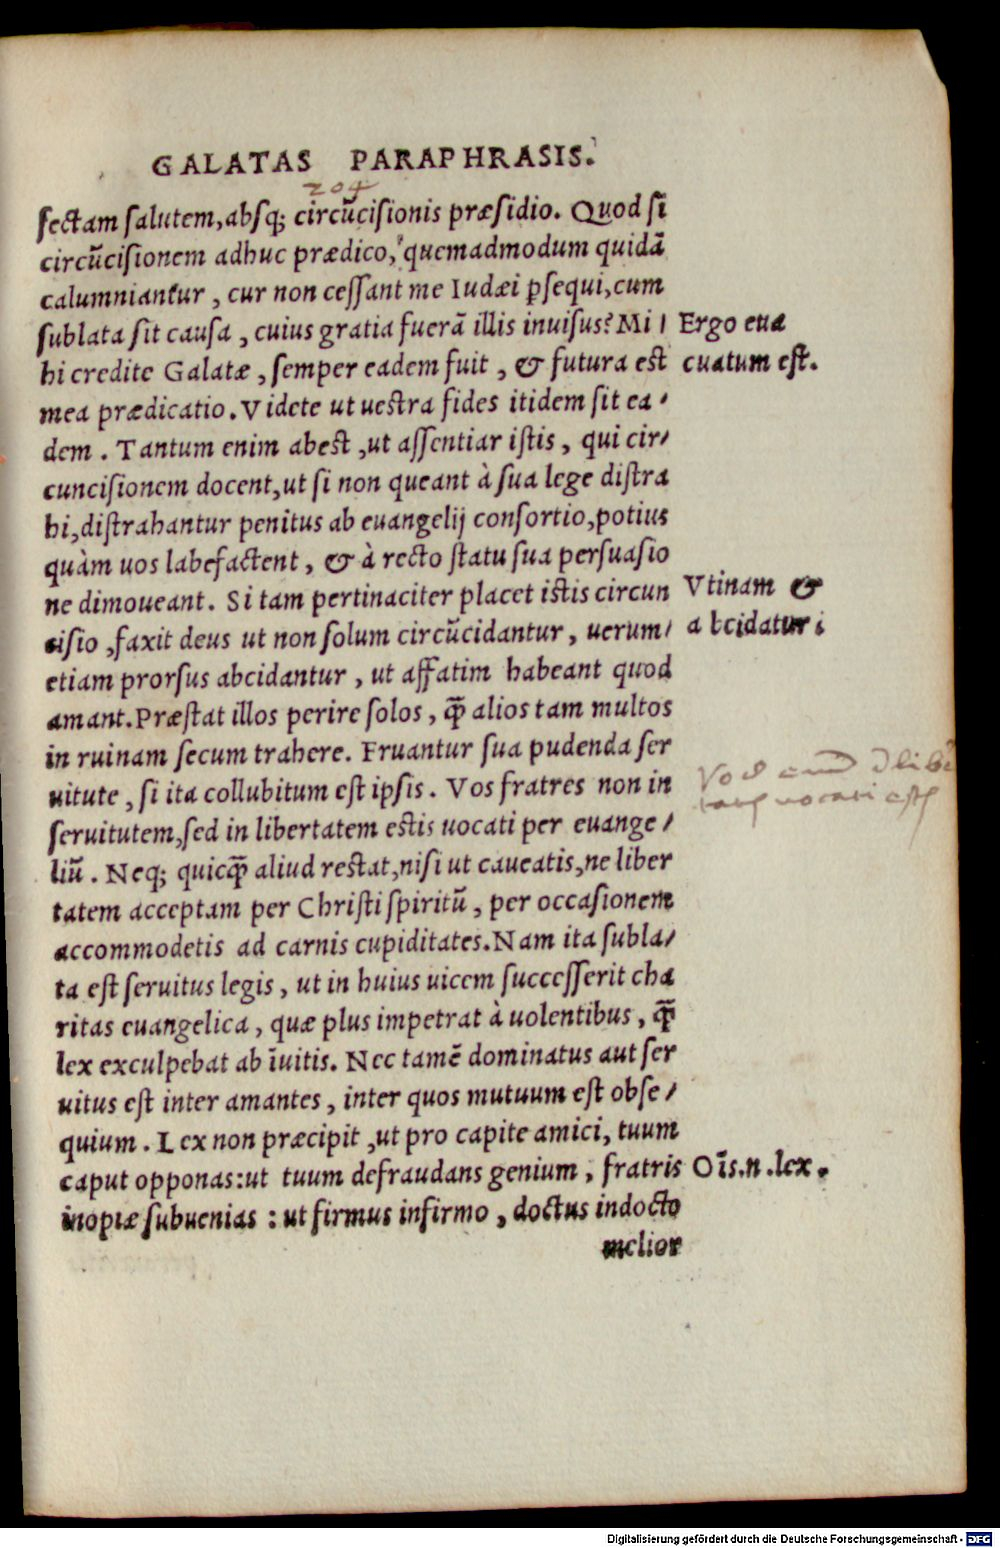 GALATAS PARAPHRASIS.
204
fectam salutem, absq; circũcisionis præsidio. Quod sĩ
circũcisionem adhuc prædico, quemadmodum quidã
calumniantur, cur non cessant me Iudæi p̱sequi, cum
sublata sit causa, cuius gratia fuerã illis inuisus? Mi/
hi credite Galatæ, semper eadem fuit, & futura est
mea prædicatio. Videte ut uestra fides itidem sit ea/
dem. Tantum enim abest, ut assentiar istis, qui cir/
cuncisionem docent, ut si non queant à sua lege distra
hi, distrahantur penitus ab euangelij consortio, potius
quàm uos labefactent, & à recto statu sua persuasio
ne dimoueant. Si tam pertinaciter placet istis circun
cisio, faxit deus ut non solum circũcidantur, uerum/
etiam prorsus abcidantur, ut affatim habeant quod
amant. Præstat illos perire solos, q̃ alios tam multos
in ruinam secum trahere. Fruantur sua pudenda ser
uitute, si ita collubitum est ipsis. Vos fratres non in
seruitutem, sed in libertatem estis uocati per euange/
liũ. Neq; quicq̃ aliud restat, nisi ut caueatis, ne liber
tatem acceptam per Christi spiritũ, per occasionem
accommodetis ad carnis cupiditates. Nam ita subla/
ta est seruitus legis, ut in huius uicem successerit cha
ritas euangelica, quæ plus impetrat à uolentibus, q̃
lex exculpebat ab ĩuitis. Nec tamẽ dominatus aut ser
uitus est inter amantes, inter quos mutuum est obse/
quium. Lex non præcipit, ut pro capite amici, tuum
caput opponas: ut tuum defraudans genium, fratris
inopiæ subuenias: ut firmus infirmo, doctus indocto
melior
Ergo eua
cuatum est.
Vtinam &
abcidatur i
uocati estis
Oĩs.n.lex.
Digitalisierung gefördert durch die Deutsche Forschungsgemeinschaft - DFG